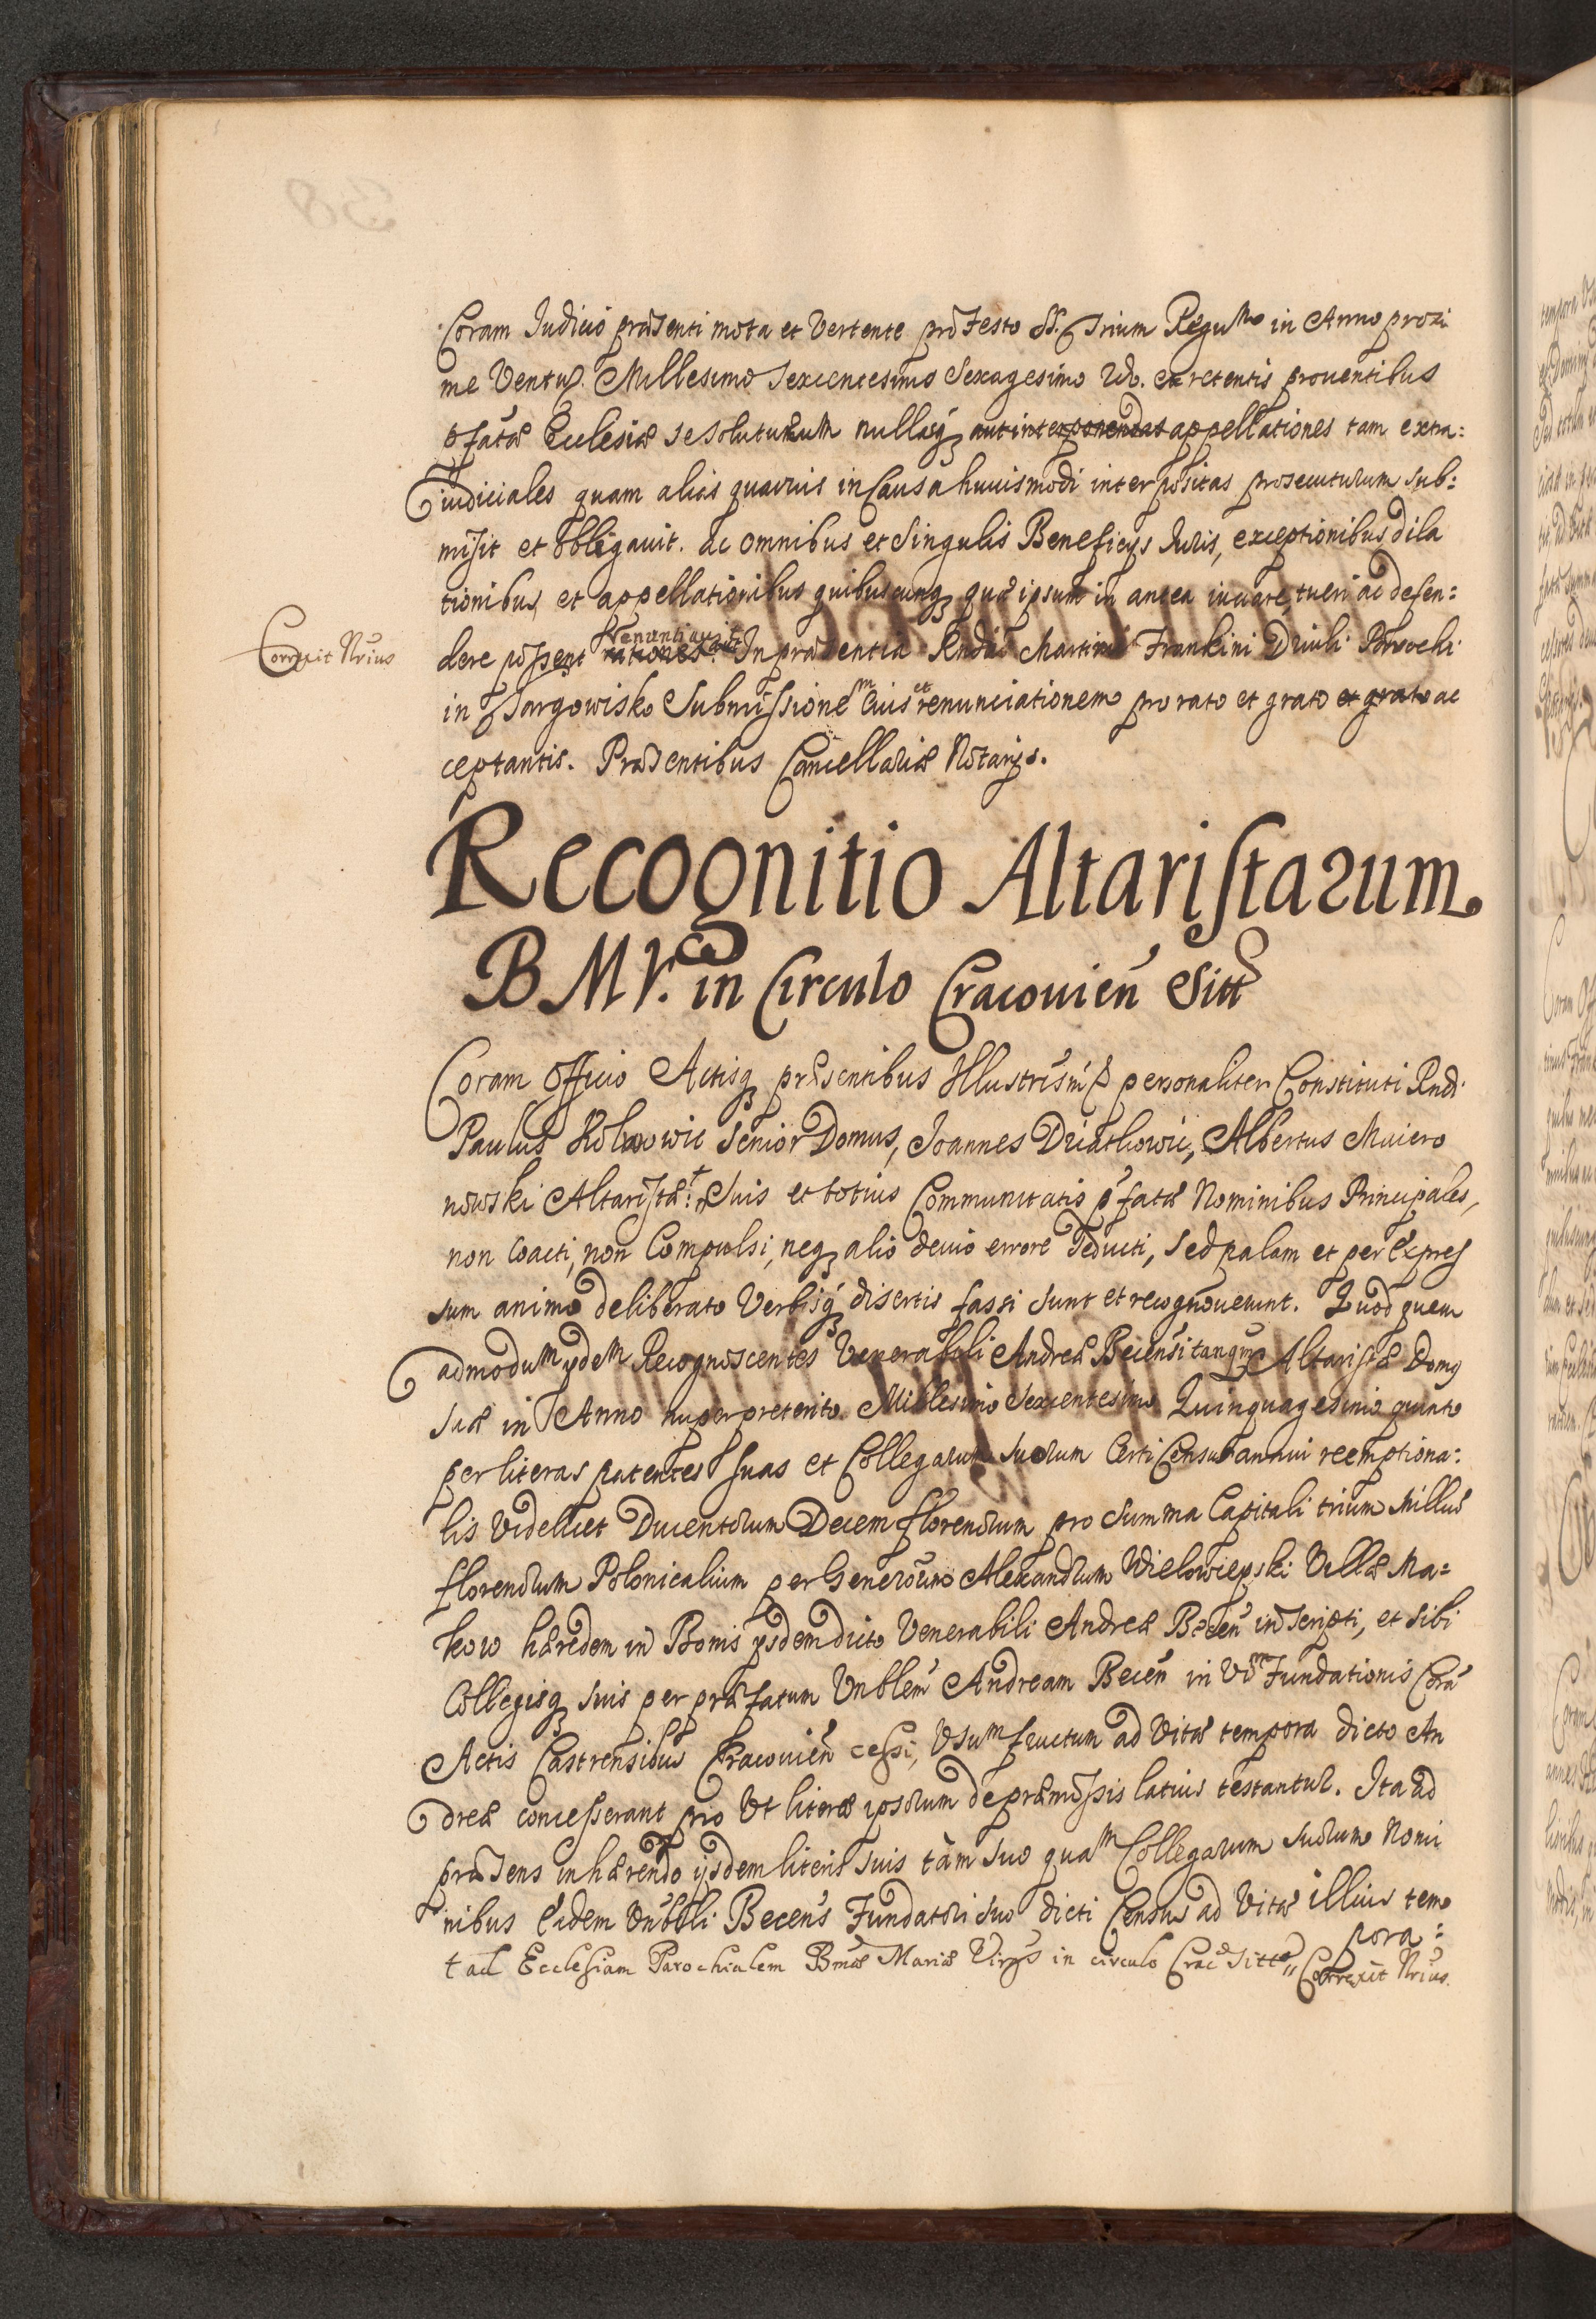 Coram Iudicio præsenti mota et Vertente pro Festo SS. Trium Regum in Anno proxi
me Ventu. Millesimo Sexcentesimo Sexagesimo 2do. ex retentis prouentibus
pfatæ Ecclesiæ se soluturum nullasq; aut interponendas appellationes tam extra:
iudiciales quam aliàs quavuis in Causa huiusmodi interpositas prosecuturum sub:
misit et obligauit. ac omnibus et Singulis Beneficys Iuris, exceptionibus dila
tionibus et appellationibus quibuscunq; quæ ipsum in antea iuuare, tueri ac defen:
Correxit Nrius
renuntiauit
dere possent rationes. In præsentia Rndi Martini Frankini Driuli Parochi
in Targowisko Submissionem Eius et renunciationem pro rato et grato et grato ac
ceptantis. Præsentibus Cancellariæ Notarys.
Recognitio Altaristarum
B M V. in Circulo Cracouien Sitt
Coram Officio Actisq; præsentibus Illustrism personaliter Constituti Rndi
Paulus Senior Domus, Joannes Driathowic, Albertus Muiero
nowski Altaristæ + Suis et totius Communitatis pfatæ Nominibus Principales,
non coacti, non Compulsi, neq; alio deuio errore seducti, sed palam et per expres
sum animo deliberato Verbisq; disertis fassi sunt et recognouerunt. Quod quem
admodum ydem Recognoscentes Venerabili Andreæ Becensi tanqm Altaristæ Domus
suæ in Anno nuper preterito Millesimo Sexcentesimo Quinquagesimo quinto
per literas patentes suas et Collegarum suorum Certi Census annui reemptiona:
lis Videlicet Ducentorum Decem florenorum pro Summa Capitali trium Millus
florenorum Polonicalium per Generosum Alexandrum Wielowieyski Villæ Ma=
kow hæredem in Bonis ysdem dicto Venerabili Andreæ Becen inscripti, et sibi
Collegisq; suis per præfatum Vnblem Andream Becen in Vim Fundationis Corà
Actis Castrensibus Cracouien cessi, Vsumfructum ad Vitæ tempora dicto An
dreæ concesserant pro Vt literæ ipsorum de præmissis latius testantur. Ita ad
præsens inhærendo ysdem literis suis tàm suo quam Collegarum suorum Nomi
nibus Eidem Vnbbli Becens Fundatori suo dicti Census ad Vitæ illius tem
pora:
+ ad Ecclesiam Parochialem Bmæ Mariæ Virgs in circulo Crac sittæ Correxit Nrius.